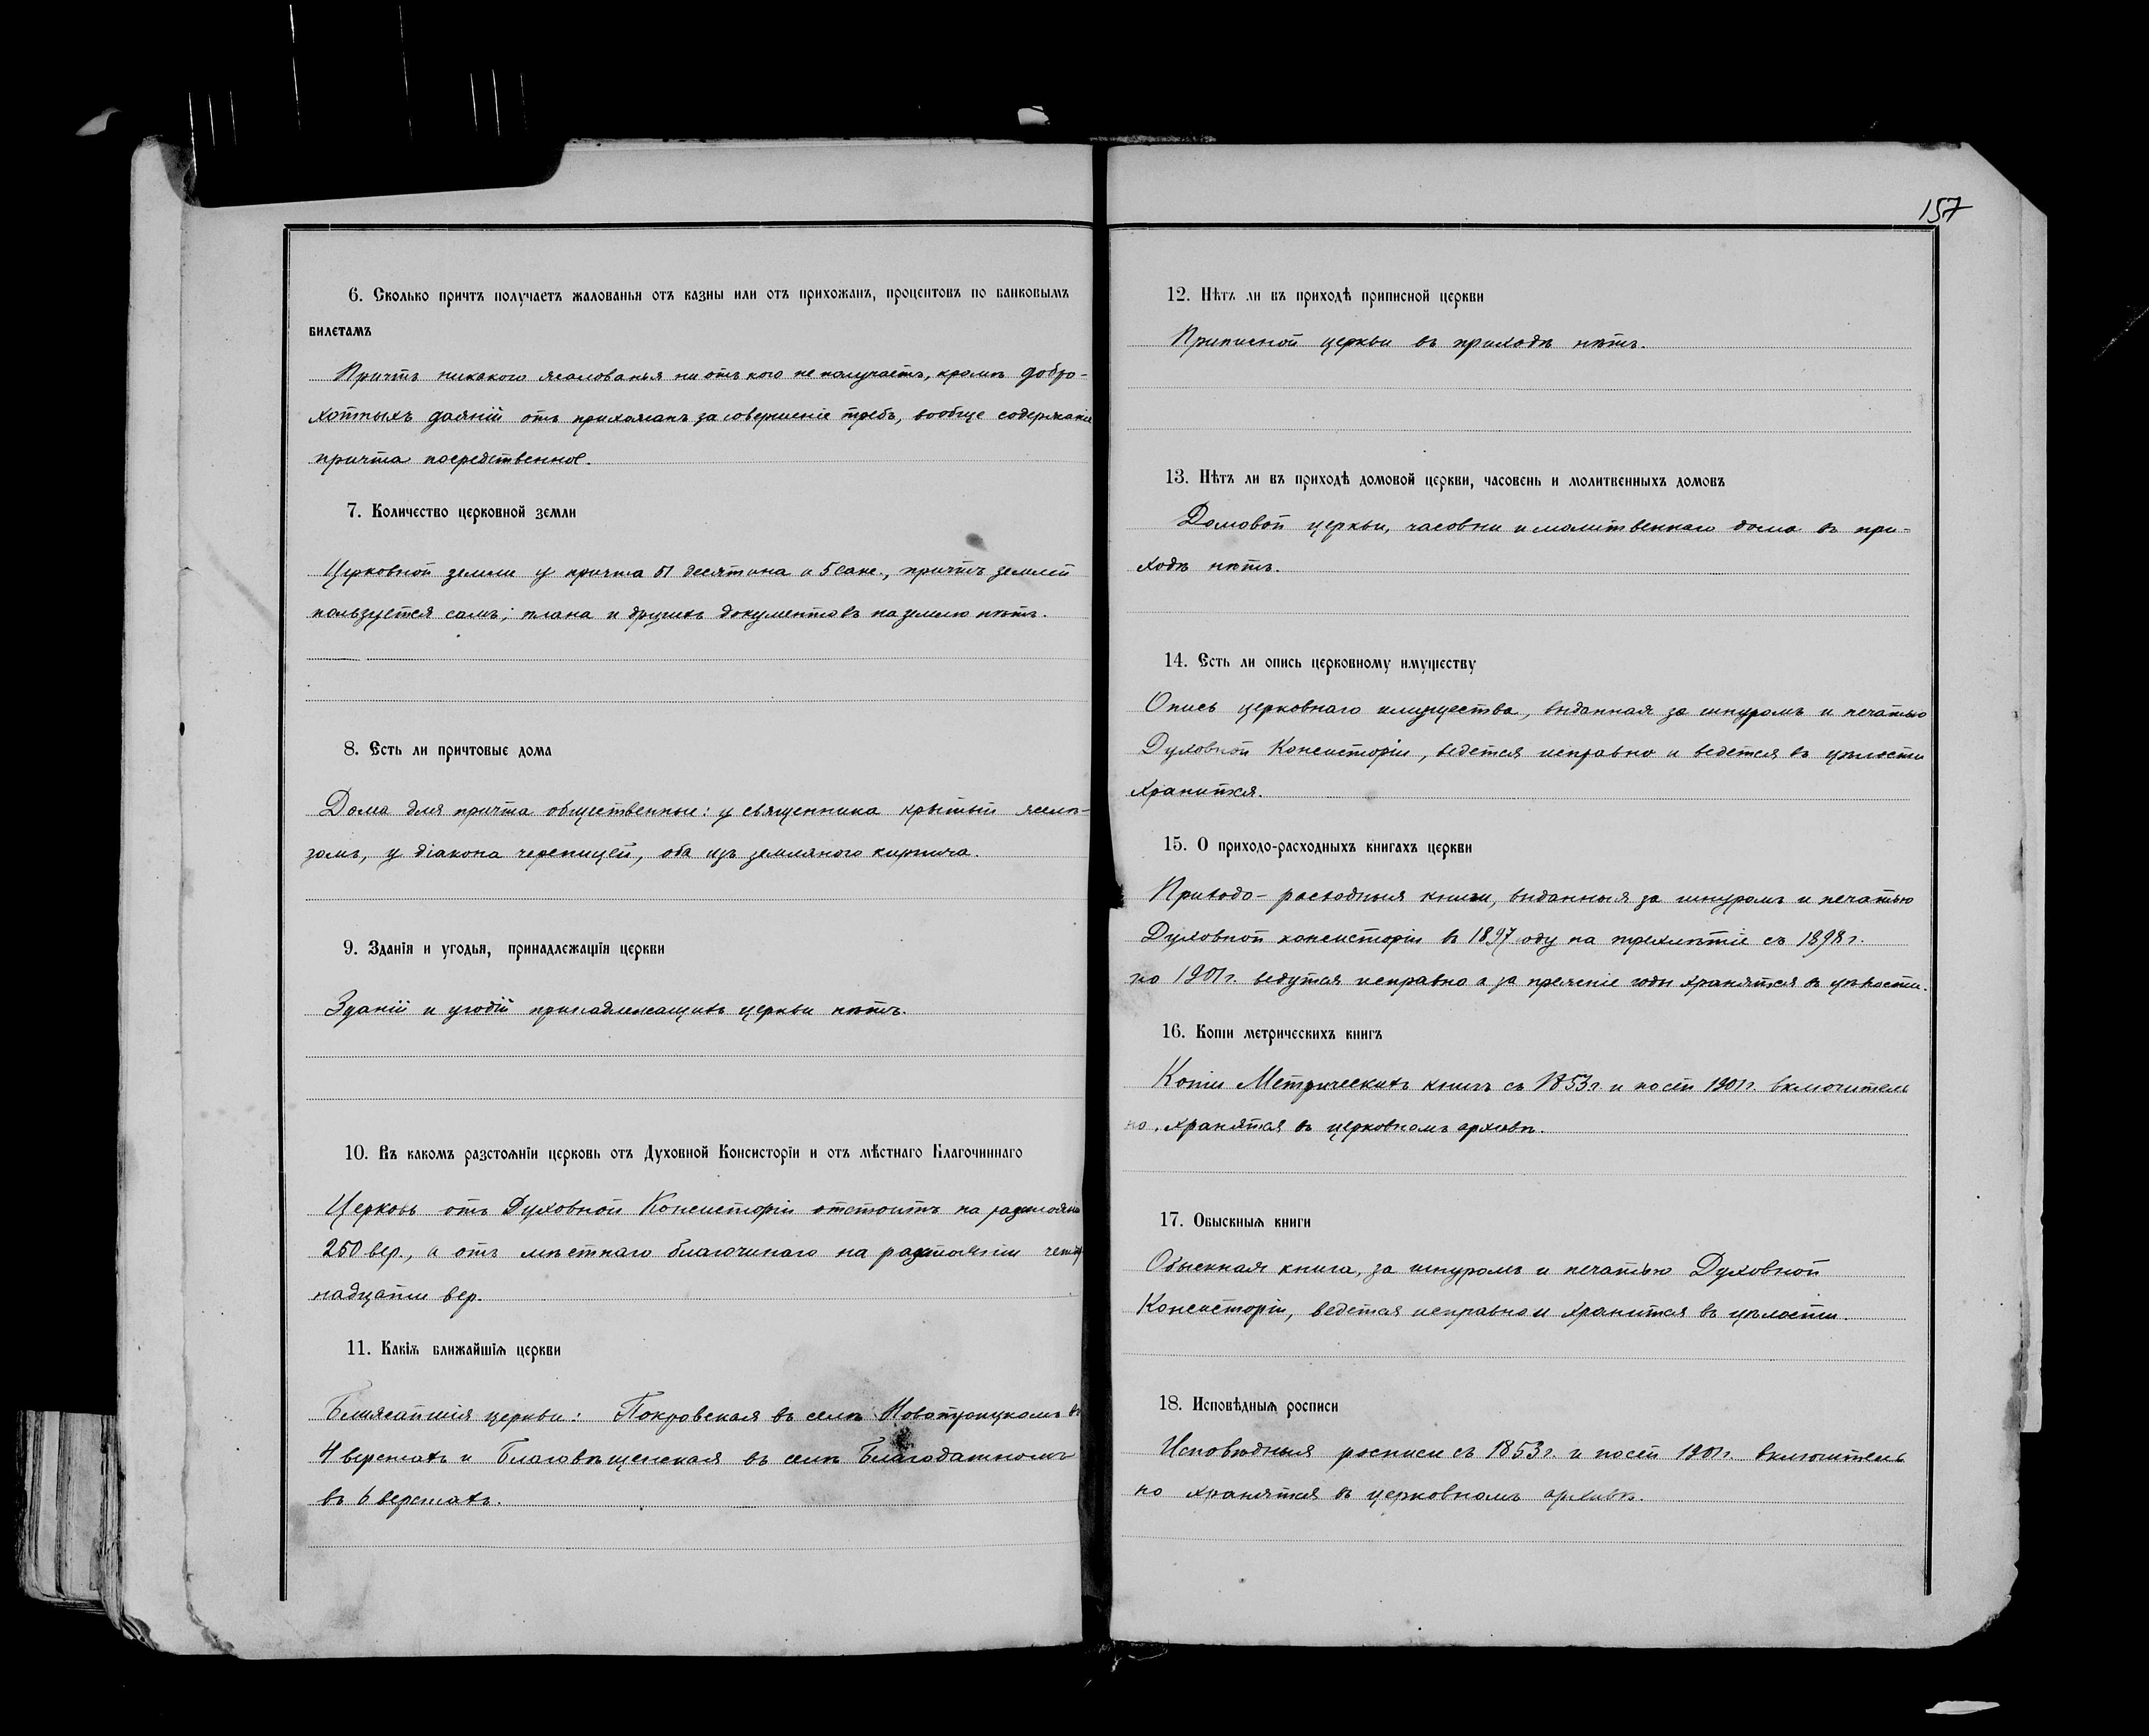 6. Сколько причтъ получаетъ жалованья отъ казны или отъ прихожанъ, процентовъ по банковымъ
билетамъ
Причтъ никакого жалованья ни отъ кого не получаетъ, кромѣ добро-
хотныхъ даяній отъ прихожанъ за совершеніе требъ, вообще содержаніе
причта посредственное.
7. Количество церковной земли
Церковной земли у причта 51 десятина и 5 саж., причтъ землей
пользуется самъ; плана и другихъ документовъ на землю нѣтъ.
8. Есть ли причтовые дома
Дома для причта общественные: у священника крытый желѣ-
зомъ, у діакона черепицей, оба изъ землянаго кирпича.
9. Зданія и угодья, принадлежащія церкви
Зданій и угодій принадлежащихъ церкви нѣтъ.
10. Въ какомъ разстояніи церковь отъ Духовной Консисторіи и отъ мѣстнаго Благочиннаго
Церковь отъ Духовной Консисторіи отстоитъ на разстояніи
250 вер., а отъ мѣстнаго благочинаго на разстояніи четыр
надцати вер.
11. Какія ближайшія церкви
Ближайшія церкви: Покровская въ селѣ Новотроицкомъ въ
4 верстахъ и Благовѣщенская въ селѣ Благодатномъ
въ 6 верстахъ.
157
12. Нѣтъ ли въ приходѣ приписной церкви
Приписной церкви въ приходѣ нѣтъ.
13. Нѣтъ ли въ приходѣ домовой церкви, часовень и молитвенныхъ домовъ
Домовой церкви, часовни и молитвеннаго дома въ при-
ходѣ нѣтъ.
14. Есть ли опись церковному имуществу
Опись церковнаго имущества, выданная за шнуромъ и печатью
Духовной Консисторіи, ведется исправно и ведется въ цѣлости
хранится.
15. О приходо-расходныхъ книгахъ церкви
Приходо-расходныя книги, выданныя за шнуромъ и печатью
Духовной консисторіи въ 1897 оду на трехлѣтіе съ 1898 г.
по 1901 г. ведутся исправно а за прежніе годы хранятся въ цѣлости.
16. Копіи метрическихъ книгъ
Копіи Метрическихъ книгъ съ 1853 г. и посей 1901 г. включитель
но, хранятся въ церковномъ архивѣ.
17. Обыскныя книги
Обыскная книга, за шнуромъ и печатью Духовной
Консисторіи, ведется исправно и хранится въ цѣлости.
18. Исповѣдныя росписи
Исповѣдныя росписи съ 1853 г. и посей 1901 г. включитель
но хранятся въ церковномъ архивѣ.